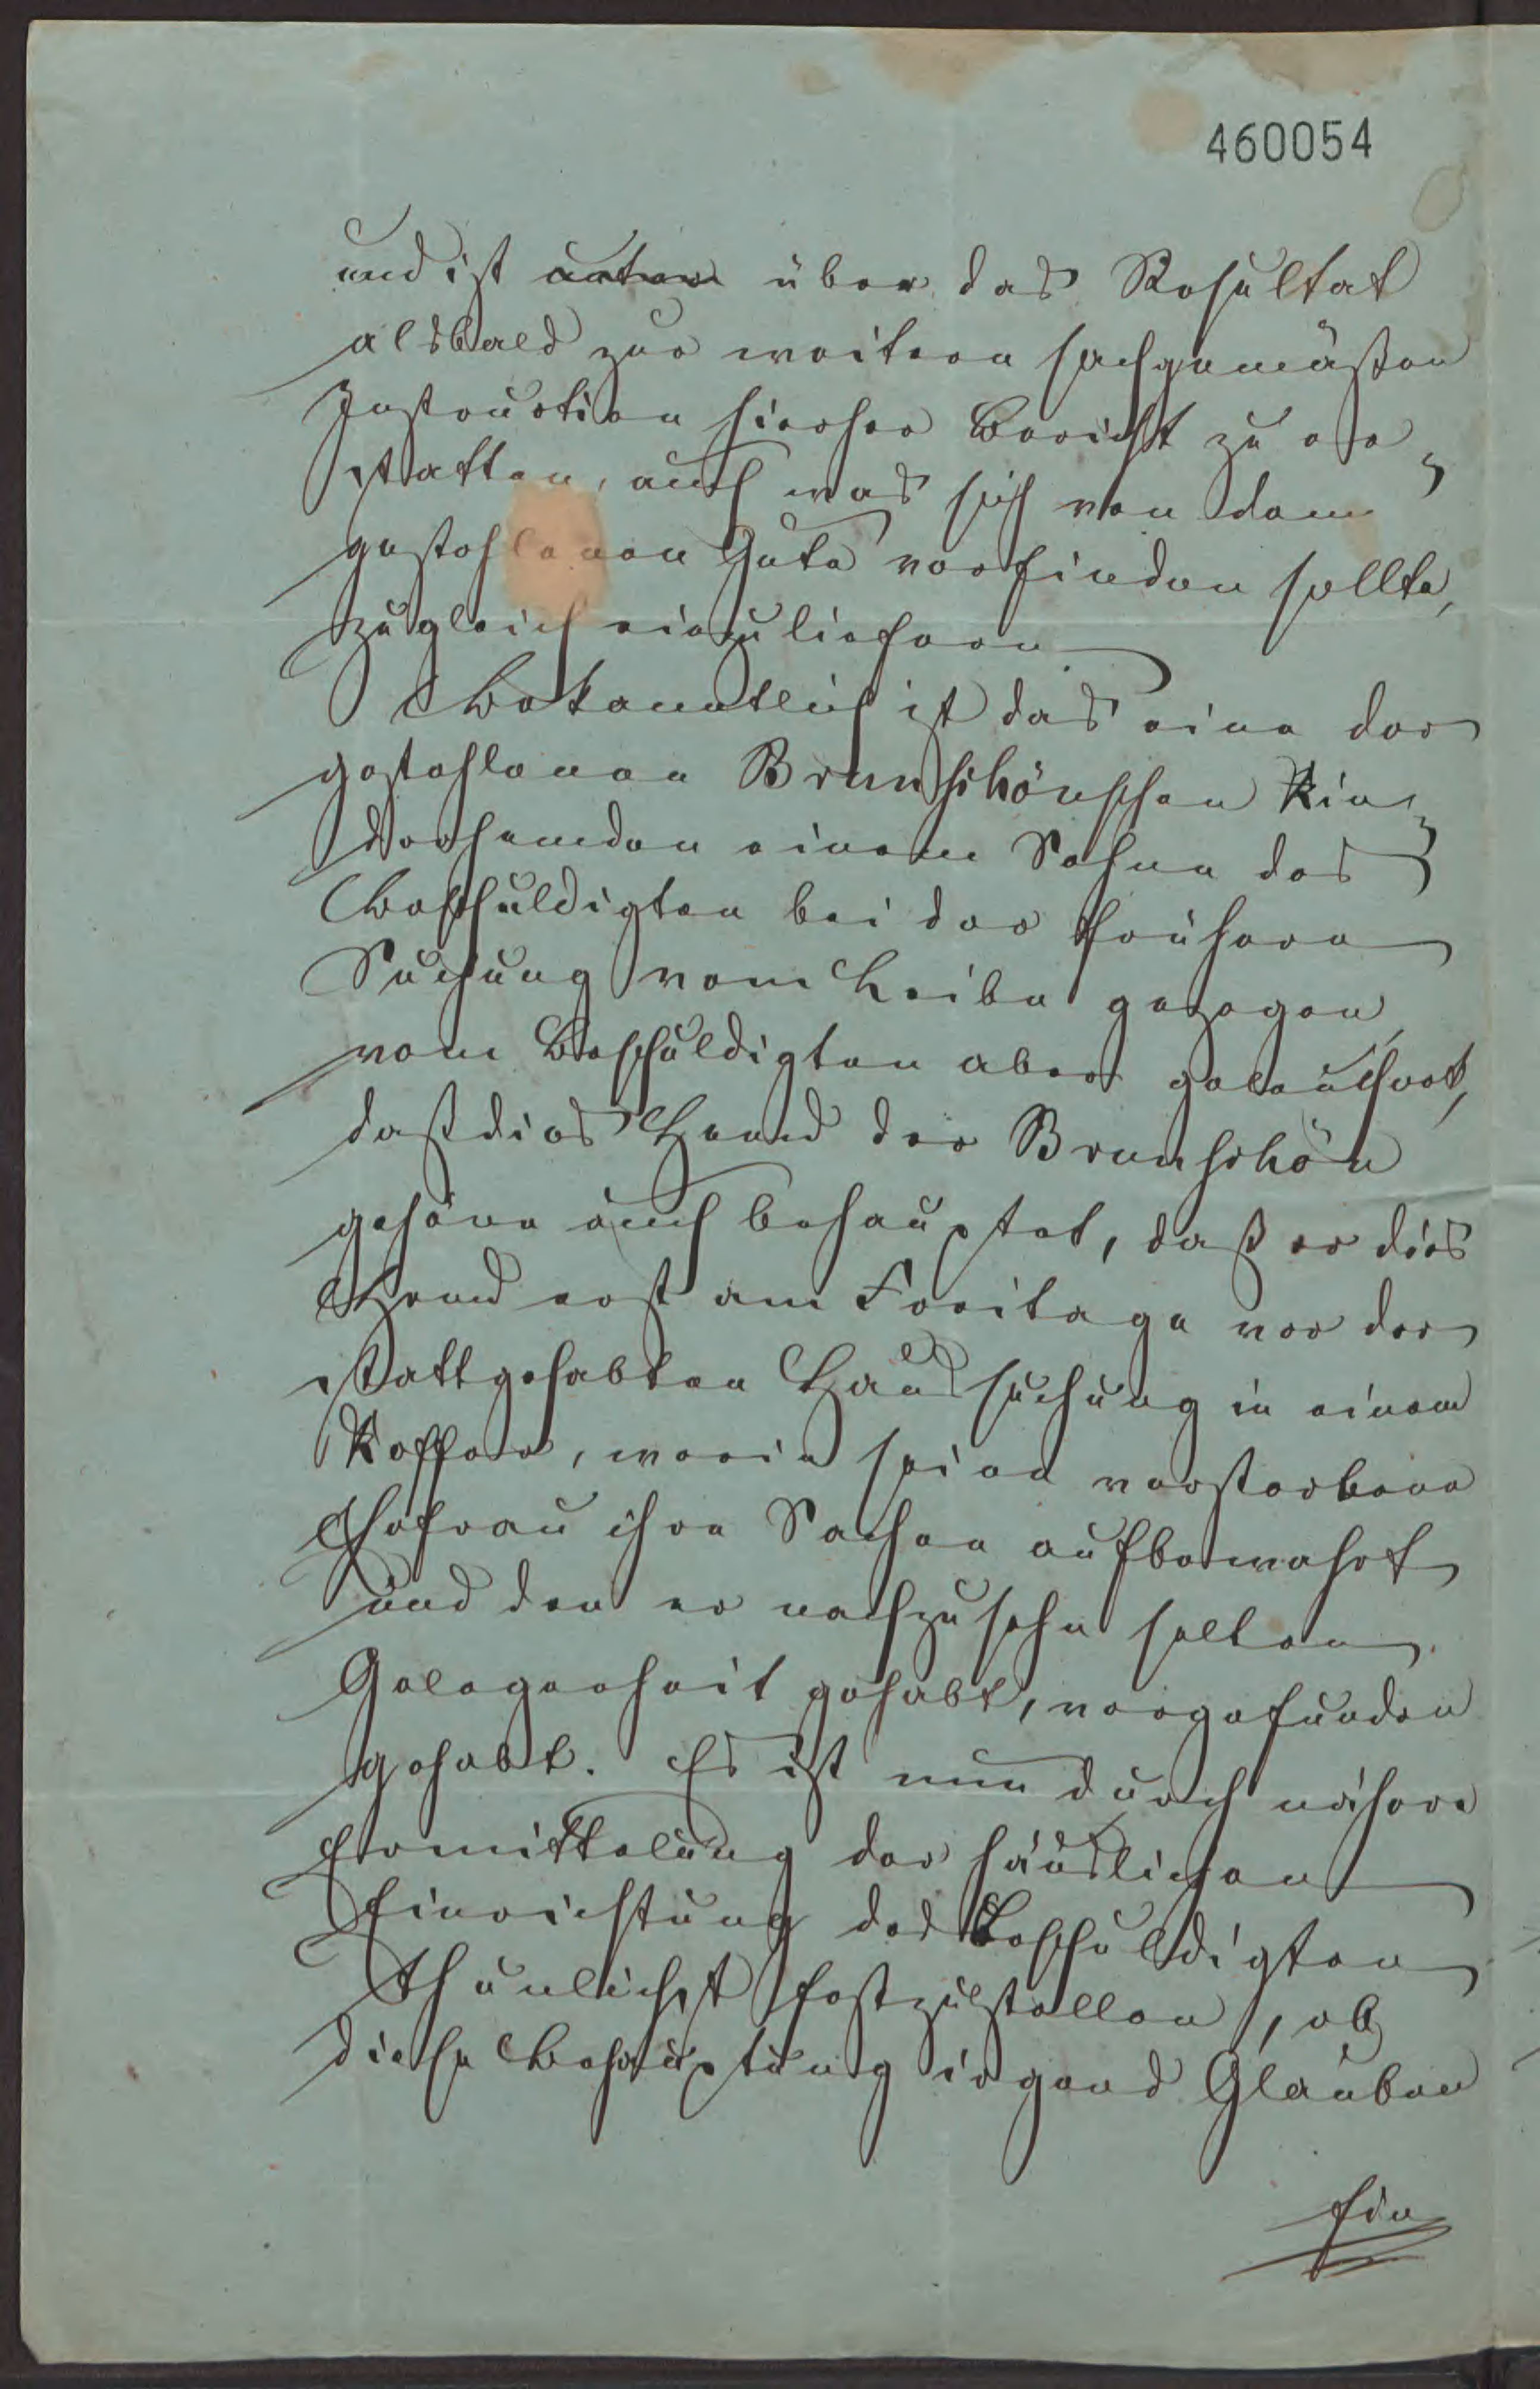 460054
und ist unter über das Resultat
alsbald zur weitern sachgemäßen
Instruction hierher Bericht zu er-
statten, auch was sich von dem
gestohlenen Gute vorfinden sollte,
zugleich einzuliefern.
Bekanntlich ist das eine der
gestohlenen Brunschönschen Kin-
derhemden einem Sohne des
Beschuldigten bei der frühern
Suchung vom Leibe gezogen,
vom Beschuldigten aber geleugnet,
daß dies Hemd der Brunschön
gehöre auch behauptet, daß er dies
Hemd erst am Freitage vor der
stattgehabten Haussuchung in einem
Koffer, worin seine verstorbene
Ehefrau ihre Sachen aufbewahrt
und den er nachzusehn selten
Gelegenheit gehabt, vorgefunden
gehabt. Es ist nun durch nähere
Ermittelung der häuslichen
Einrichtung des Beschuldigten
thunlichst festzustellen, ob
diese Behauptung irgend Glauben